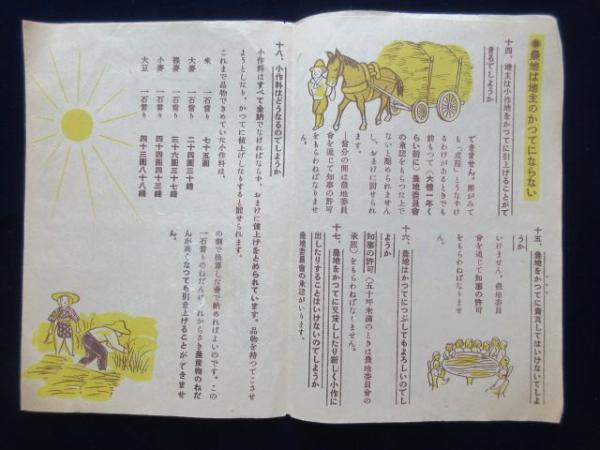 ●農地は地主のかつてにならない
十四、地主は小作地をかつてに引上げることがで
きるでしようか
できません。誰がみて
も「成程」とうなずけ
るわけがあるときでも
前もつて（大體一年く
らい前に）農地委員會
の承認をもらつた上で
ないと認められません
し、おまけに罰せられ
ます。
當分の間は農地委員
會を通じて知事の許可
をもらわねばなりませ
ん。
十五、農地をかつてに賣買してはいけないでしよ
うか
いけません。農地委員
會を通じて知事の許可
をもらわねばなりませ
ん。
十六、農地はかつてにつぶしてもよろしいのでし
ようか
知事の許可（五十坪未満のときは農地委員會の
承認）をもらわねばなりません。
十七、農地をかつてに又貸ししたり新しく小作に
出したりすることはいけないのでしようか
農地委員會の承認がいります。
十八、小作料はどうなるのでしようか
小作料はすべて金納でなければならず、おまけに値上げをとめられています。品物を持つてこさせ
ようとしたり、かつてに値上げしたりすると罰せられます。
これまで品物できめていた小作料は、
米　一石當り　七十五圓
大麥　一石當り　二十四圓十三錢
裸麥　一石當り　三十六圓三十七錢
小麥　一石當り　四十圓四十三錢
大豆　一石當り　四十三圓八十八錢
の割で換算した金で納めればよいのです。この
一石當りのねだんは、これからさき農産物のねだ
んが高くなつても引き上げることができませ
ん。